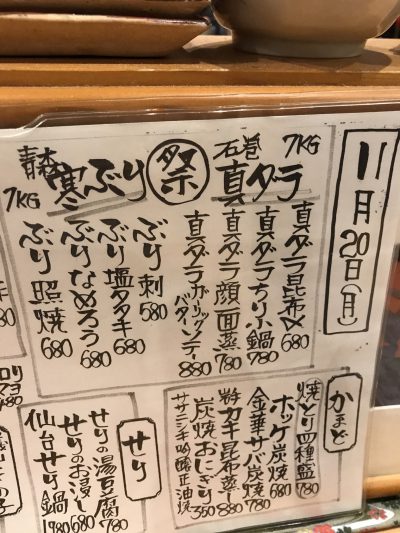 11月20日(月)
石巻 7KG
真ダラ
祭
青森 寒ぶり
7KG
真ダラ昆布〆 680
真ダラちり小鍋 780
真ダラ顔面蒸し 780
真ダラガーリックバターソテー 880
ぶり刺 580
ぶり塩タタキ 680
ぶりなめろう 680
ぶり照焼 680
かまど
焼とり四種盛 780
ホッケ炭焼 680
金華サバ炭焼 780
カキ昆布蒸し 880
炭焼おにぎり 350
ササニシキ吟醸正油焼
せり
せりの湯豆腐 780
せりのお浸し 680
仙台せり鍋 1980